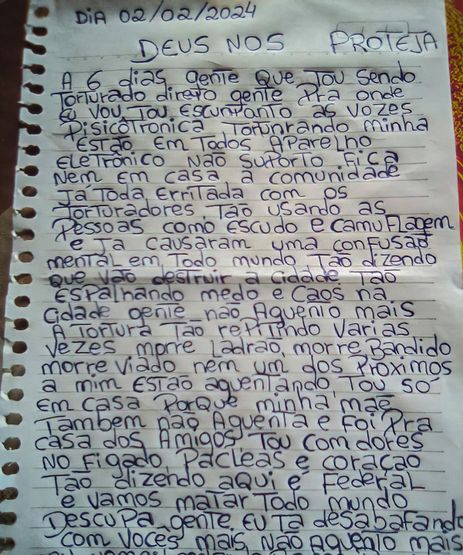 DiA 02/02/2024
DEUS NOS PROTEJA
A 6 dias gente QUE TOU SENDO
TORTURADO direto gente PRA onde
EU VOU TOU ESCUNPONTO as VOZES
PISICOTRONICA TORUNRANDO minha
ESTÃO EM TODOS APARELHO
ELETRÔNICO NÃO SUPORTO FICA
NEM EM CASA a COMUNIDADE
JÁ TODA ERRITADA COM OS
TORTURADORES TÃO USANDO AS
PESSOAS COMO ESCUDO E CAMUFLAGEM
e Ja CAUSARAM UMA CONFUSAO
mental em TODO mundo TÃO dizendo
QUE VÃO DESTRUIR a CIDADE TÃO
ESPALHANDO MEDO e CAOS NA
CIDADE gente NÃO AQUENTO MAIS
A TORTURA TÃO REPITINDO VARIAS
VEZES mORRE LADRÃO, MORRE BANDIDO
MORRE VIADO NEM UM dOS PROXIMOS
a mim ESTÃO AQUENTANDO TOU SÓ
EM CASA PORQUE minha MÃE
TAMBEM NÃO AQUENTA E FOI PRA
CASA DOS AMIGOS TOU COM DORES
NO FIGADO, PACLEAS e CORACAO
TÃO DIZENDO AQUI e FEDERAL
e VAMOS MATAR TODO MUNDO
DESCUPA gente EU TA DESABAFANDO
COM VOCES MAIS NÃO AQUENTO MAIS